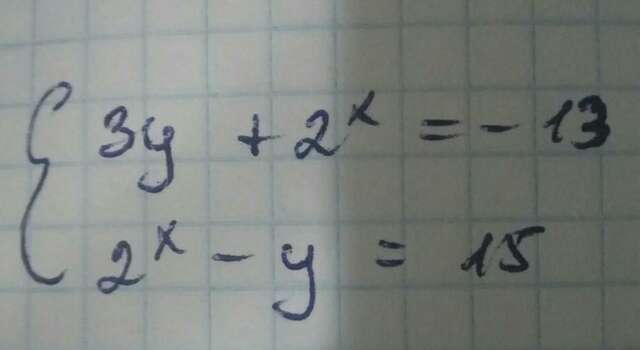 3y + 2^x = - 13
2^x - y = 15